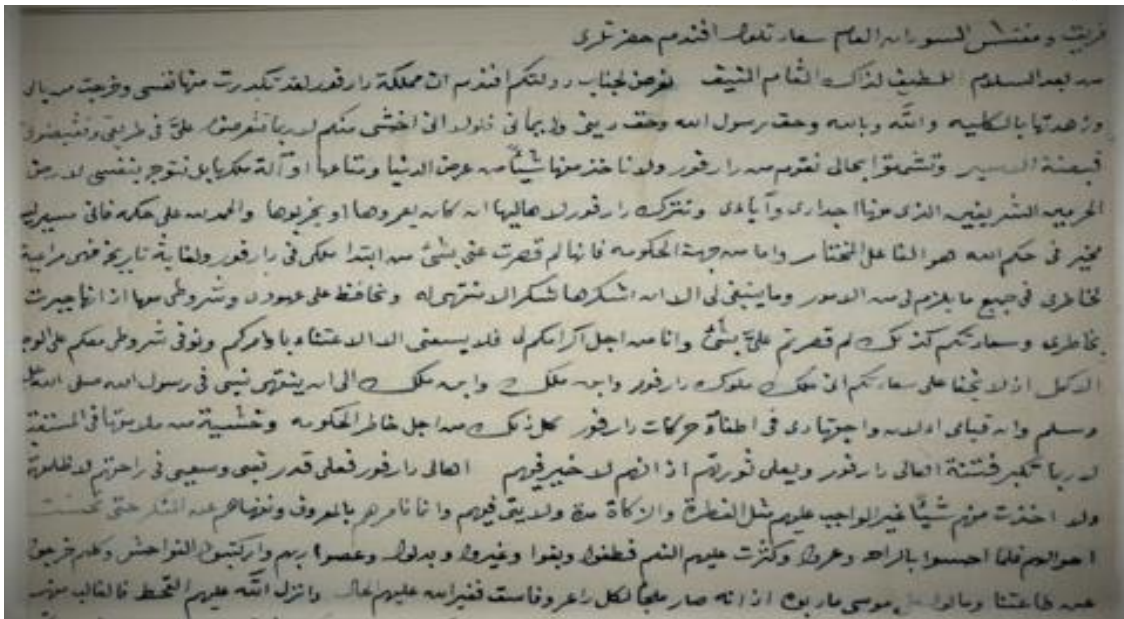 فريق ومفتش السودان العام سعادتلو افندم حضرتلرى
من بعد السلام اللطيف لذاك المقام المنيف نعرض لجناب دولتكم افندم ان مملكة دارفور لقد تكدرت منها نفسى وخرجت من بالى
وزهدتها بالكليه والله وبالله وحق رسول الله وحق دينى وايمانى فلولا انى اخشى منكم لربما تتعرضو علىّ فى طريقى وتقبضونى
قبضة الاسير وتشمتوا بحالى نقوم من دارفور ولا ناخذ منها شيئاً من عرض الدنيا ومتاعها او آلة ملكها بل نتوجه بنفسى لارض
الحرمين الشريفين الذى هونها اجدادى وآبائى ونترك دارفور لاهاليها ان كان يعمروها او يخربوها والحمد لله على حكمه فانى مسير ليس
مخير فى حكم الله هو الفاعل المختار واما من جهة الحكومه فانها لم قصرت عنى بشئ من ابتدا ملكى فى دارفور ولغاية تاريخه فهى مراعية
لخاطرى فى جميع ما يلزم لى من الامور وما ينبغى لى الا ان اشكرها شكر الا منتهى له ونحافظ على عهودى وشروطى معها اذ انها جبرت
بخاطرى وسعادتكم كذلك لم قصرتم علىّ بشئ وانا من اجل اكرامكم لى فلا يسعنى الا الاعتناء باوامركم ونوفى شروطى معكم على الوجه
الاكمل اذ لا يخفا على سعادتكم انى ملك ملوك دارفور وابن ملك وابن ملك الى ان ينتهى نسبى فى رسول الله صلى الله عليه
وسلم وان قيامى الان واجتهادى فى اطفاء حركات دارفور كل ذلك من اجل خاطر الحكومه وخشية من ملامتها فى المستقبل
لربما تكبر فتنة اهالى دارفور ويعلى ثورتهم اذ انهم لا خير فيهم اهالى دارفور فعلى قدر تعبى وسعيى فى راحتهم لا ظلمتهم
ولا اخذت منهم شيئاً غير الواجب عليهم مثل الفطرة والزكاة مدة ولايتى فيهم وانا نامرهم بالمعروف وننهاهم عن المنكر حتى تحسنت
احوالهم فلما احسوا بالراحه وعمروا وكثرت عليهم النعم فطغوا وبغوا وغيروا وبدلوا وعصوا ربهم وارتكبوا الفواحش وكلهم خرجوا
عن طاعتنا ومالوا على موسى ماربوه اذ انه صار ملجأ لكل داعر وفاسق فغير الله عليهم الحال وانزل الله عليهم القحط فالغالب منهم